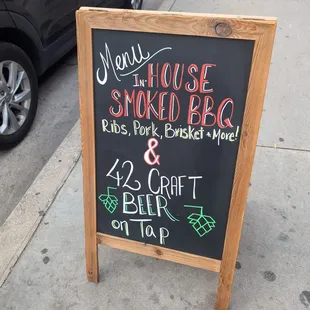 Menu
IN-HOUSE
SMOKED BBQ
Ribs, Pork, Brisket & More!
&
42 CRAFT
BEER
on Tap